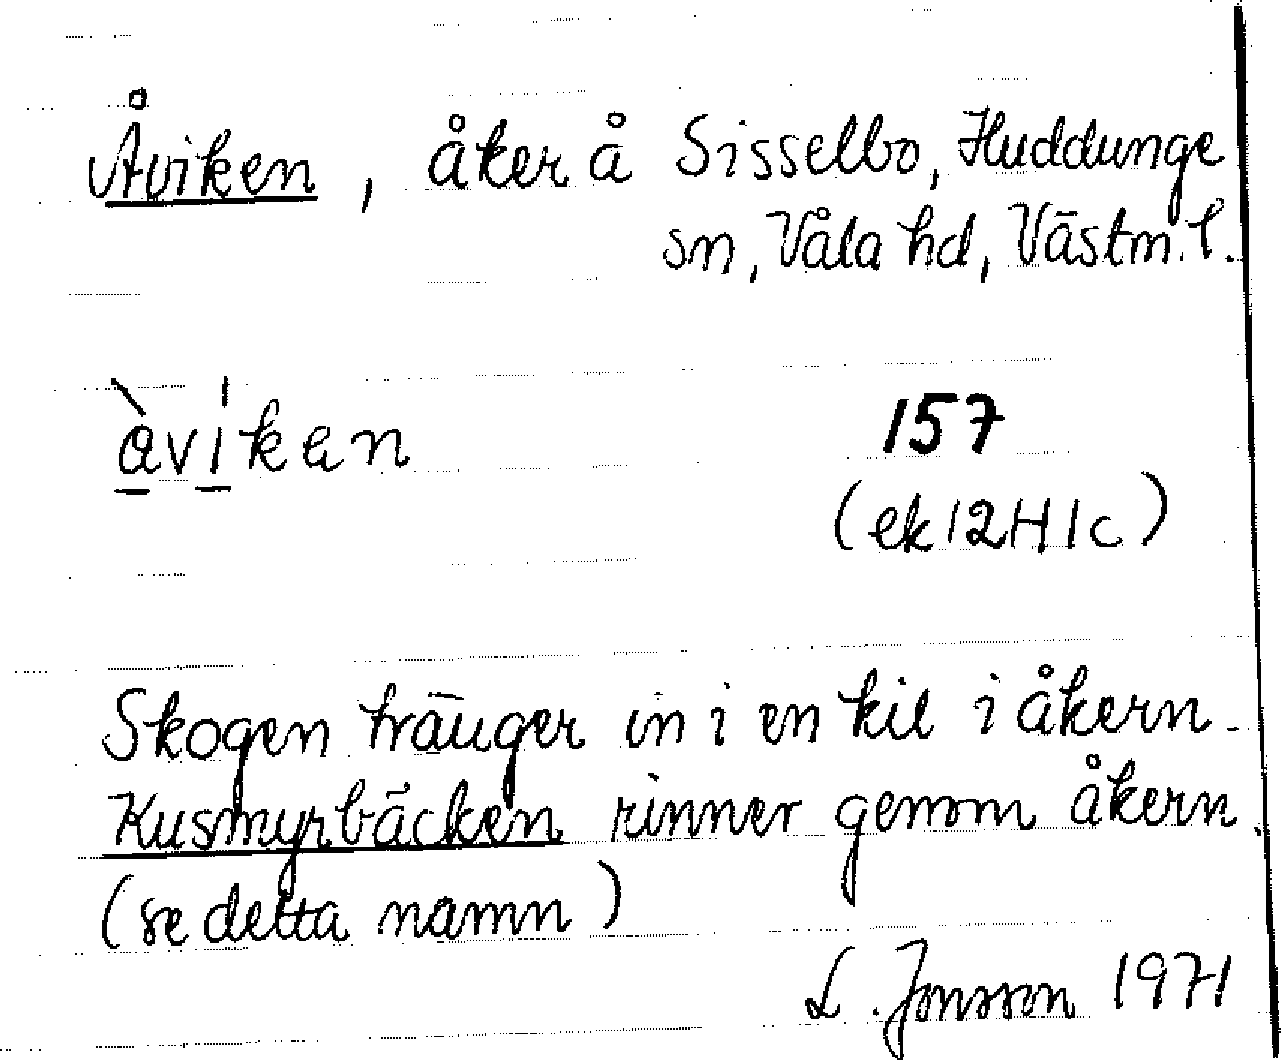 Åviken, åker å Sisselbo, Huddunge
sn, Våla hd, Västm. l.
àvíkɐn
157
(ek 12H1c)
Skogen tränger in i en kil i åkern.
Kusmyrbäcken rinner genom åkern.
(se detta namn)
L. Jonsson 1971